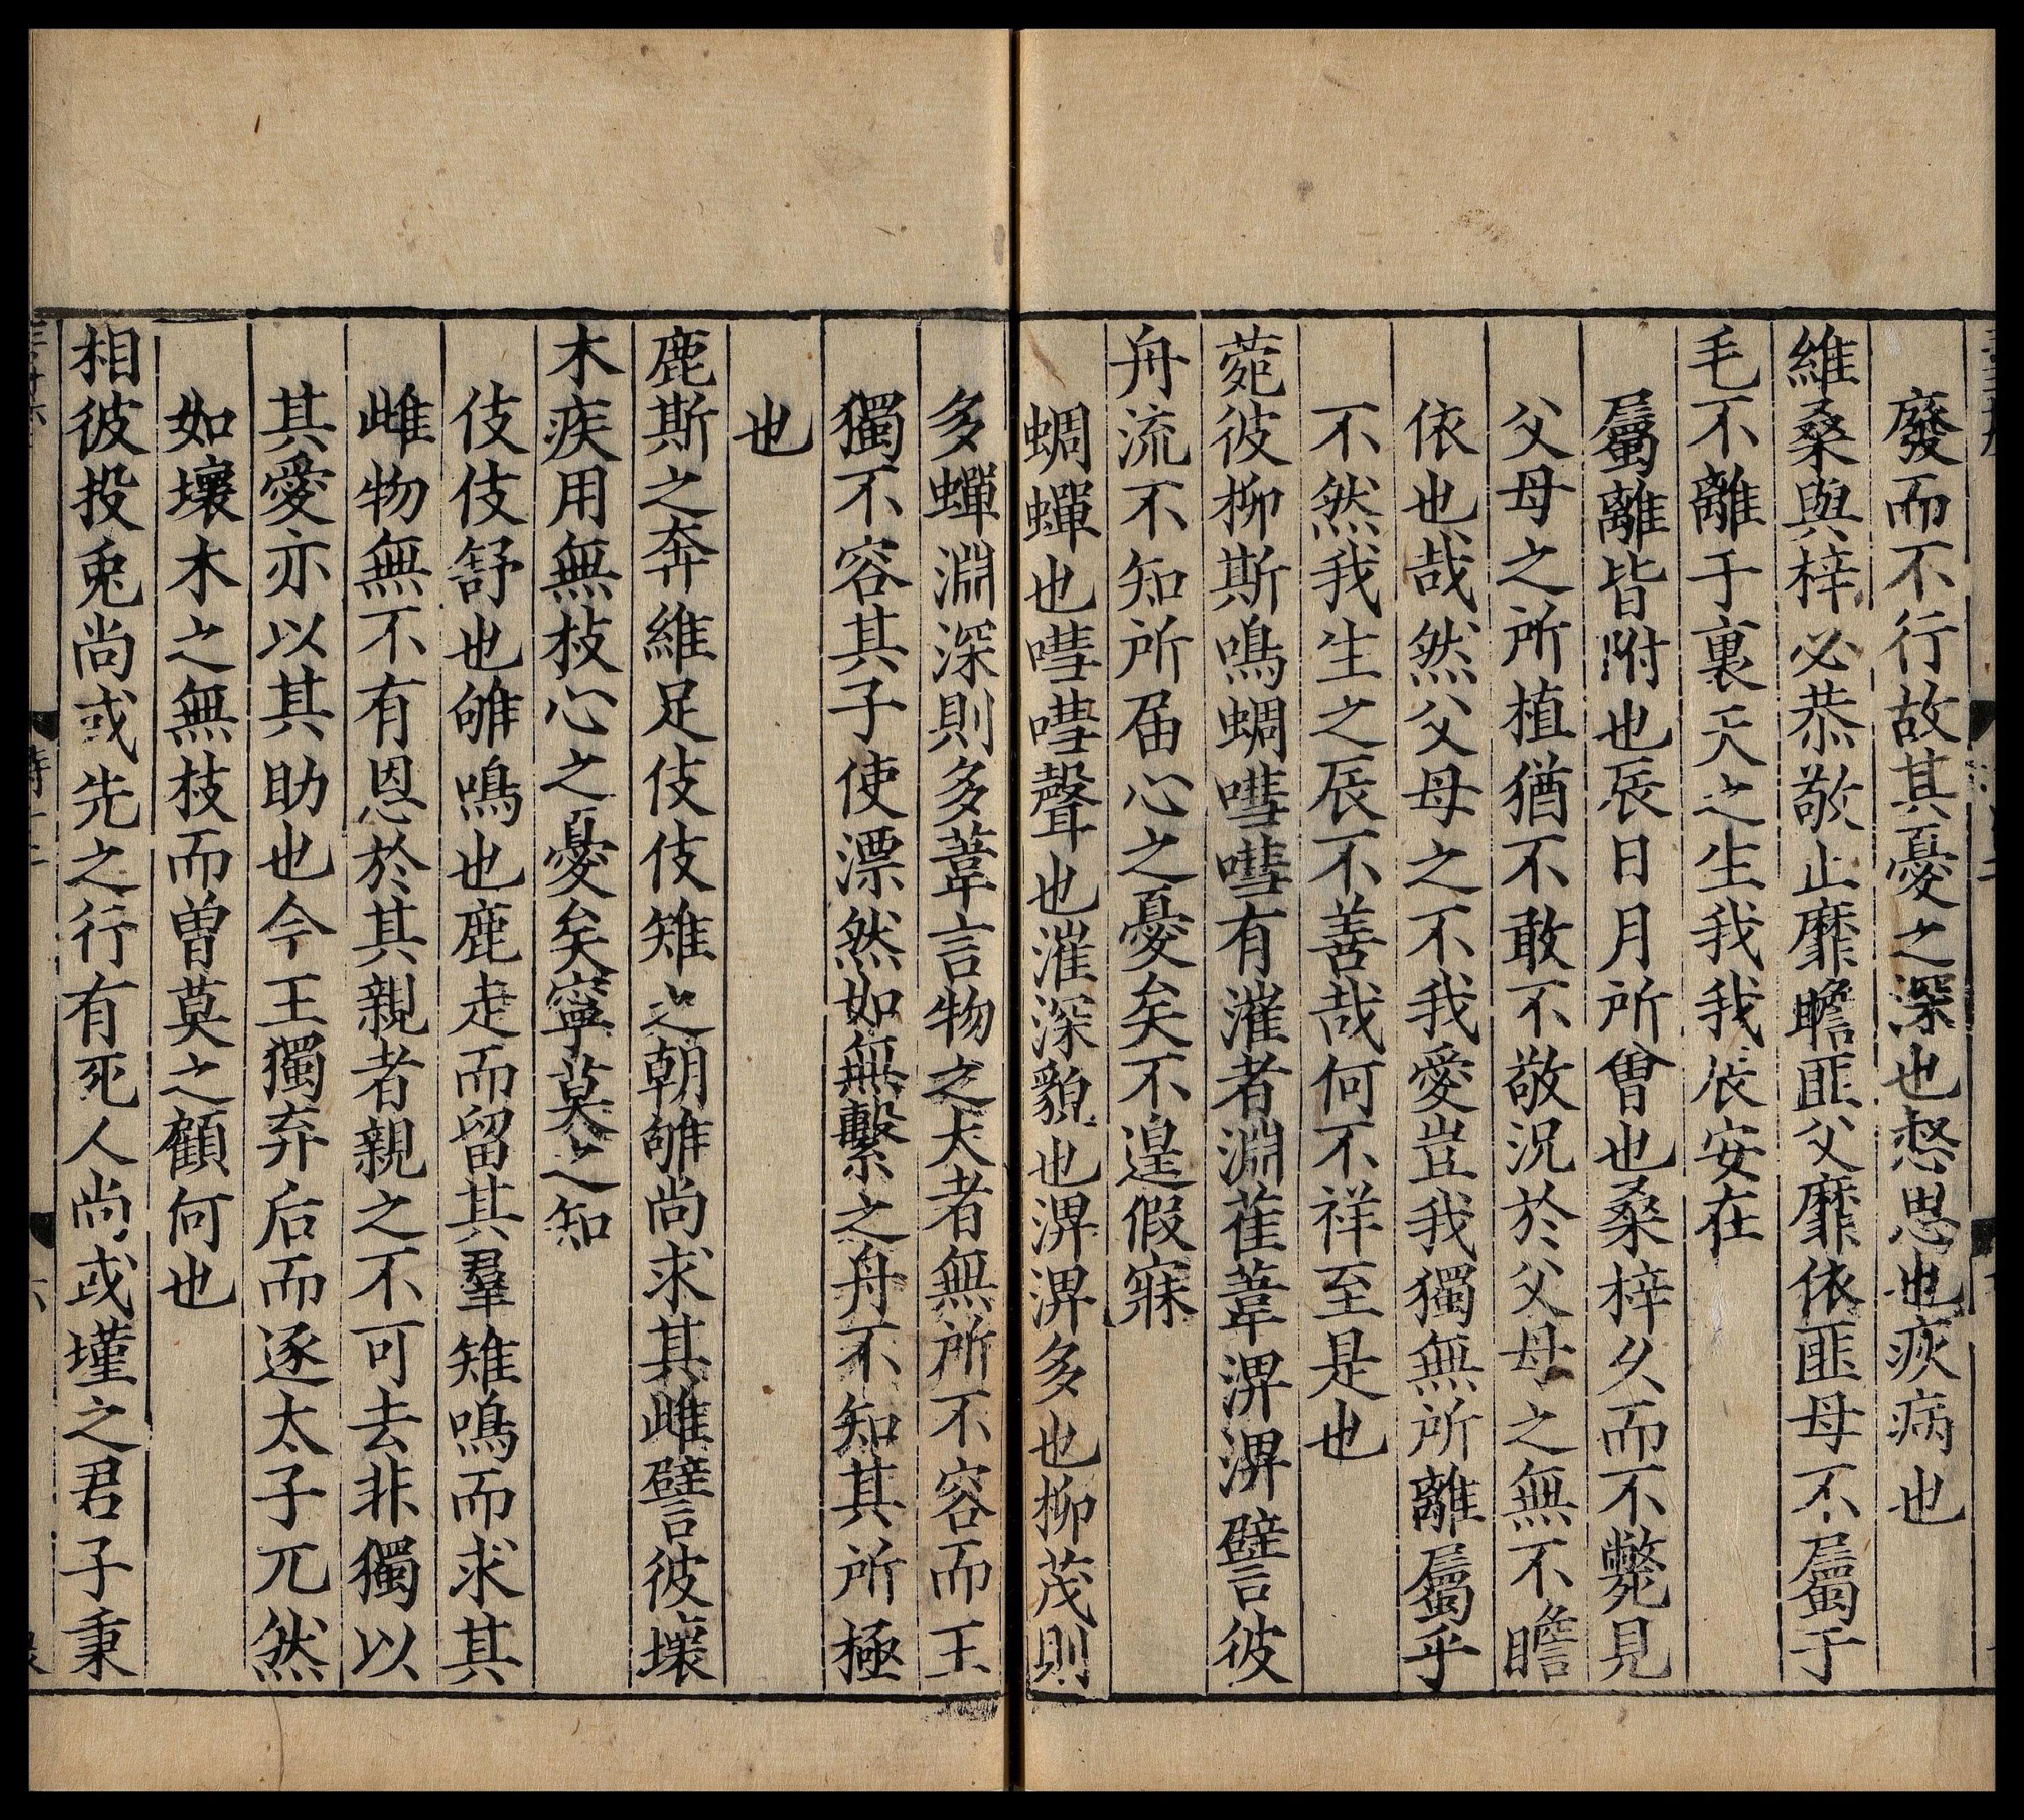 廢而不行故其憂之深也惄思也疢病也
維桑與梓必恭敬止靡瞻匪父靡依匪母不屬于
毛不離于裏天之生我我辰安在
屬離皆附也辰日月所會也桑梓久而不斃見
父母之所植猶不敢不敬況於父母之無不瞻
依也哉然父母之不我愛豈我獨無所離屬乎
不然我生之辰不善哉何不祥至是也
菀彼柳斯鳴蜩嘒嘒有漼者淵萑葦淠淠譬彼
舟流不知所届心之憂矣不遑假寐
蜩蟬也嘒嘒聲也漼深貌也淠淠多也柳茂則
多蟬淵深則多葦言物之大者無所不容而王
獨不容其子使漂然如無繫之舟不知其所極
也
鹿斯之奔維足伎伎雉之朝雊尚求其雌譬彼壞
木疾用無枝心之憂矣寧莫之知
伎伎舒也雊鳴也鹿走而留其羣雉鳴而求其
雌物無不有恩於其親者親之不可去非獨以
其愛亦以其助也今王獨弃后而逐太子兀然
如壞木之無枝而曾莫之顧何也
相彼投兎尚或先之行有死人尚或墐之君子秉